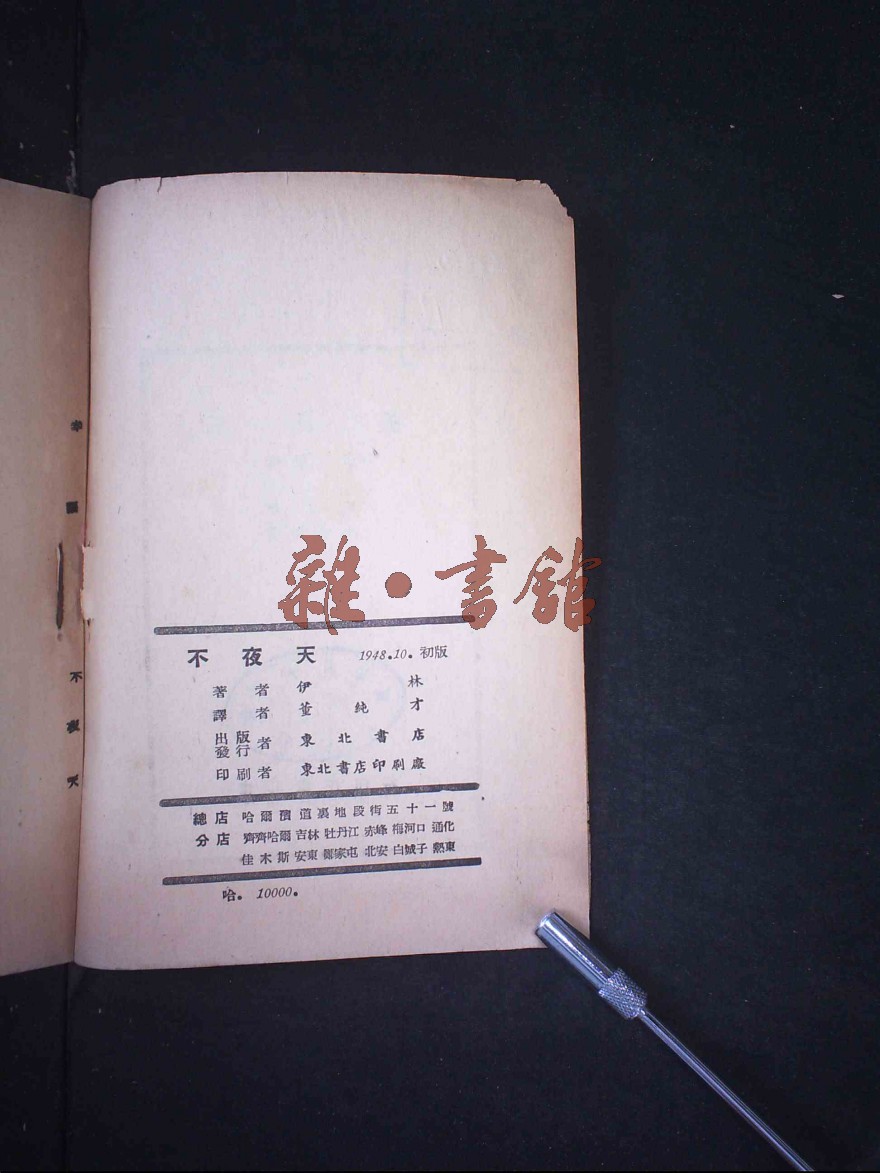 雜·書館
不夜天 1948.10. 初版
著者 伊林
譯者 董純才
出版發行者 東北書店
印刷者 東北書店印刷廠
總店 哈爾濱道裏地段街五十一號
分店 齊齊哈爾 吉林 牡丹江 赤峰 梅河口 通化
佳木斯 安東 鄭家屯 北安 白城子 熱東
哈. 10000.
不夜天